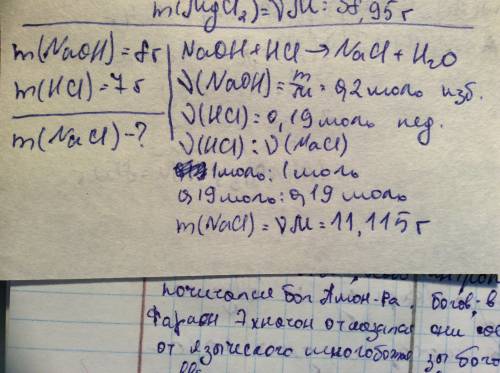 m(MgCl₂)=νM=58,95г
m(NaOH)=8г
m(HCl)=7г
m(NaCl)-?
NaOH+HCl→NaCl+H₂O
ν(NaOH)=m/M=0,2моль изб.
ν(HCl)=0,19моль нед.
ν(HCl):ν(NaCl)
1моль:1моль
0,19моль:0,19моль
m(NaCl)=νM=11,115г
почитался бог Амон-Ра.
Фараон Эхнатон отказался
от языческого многобожия
богов, в
они
зы бого